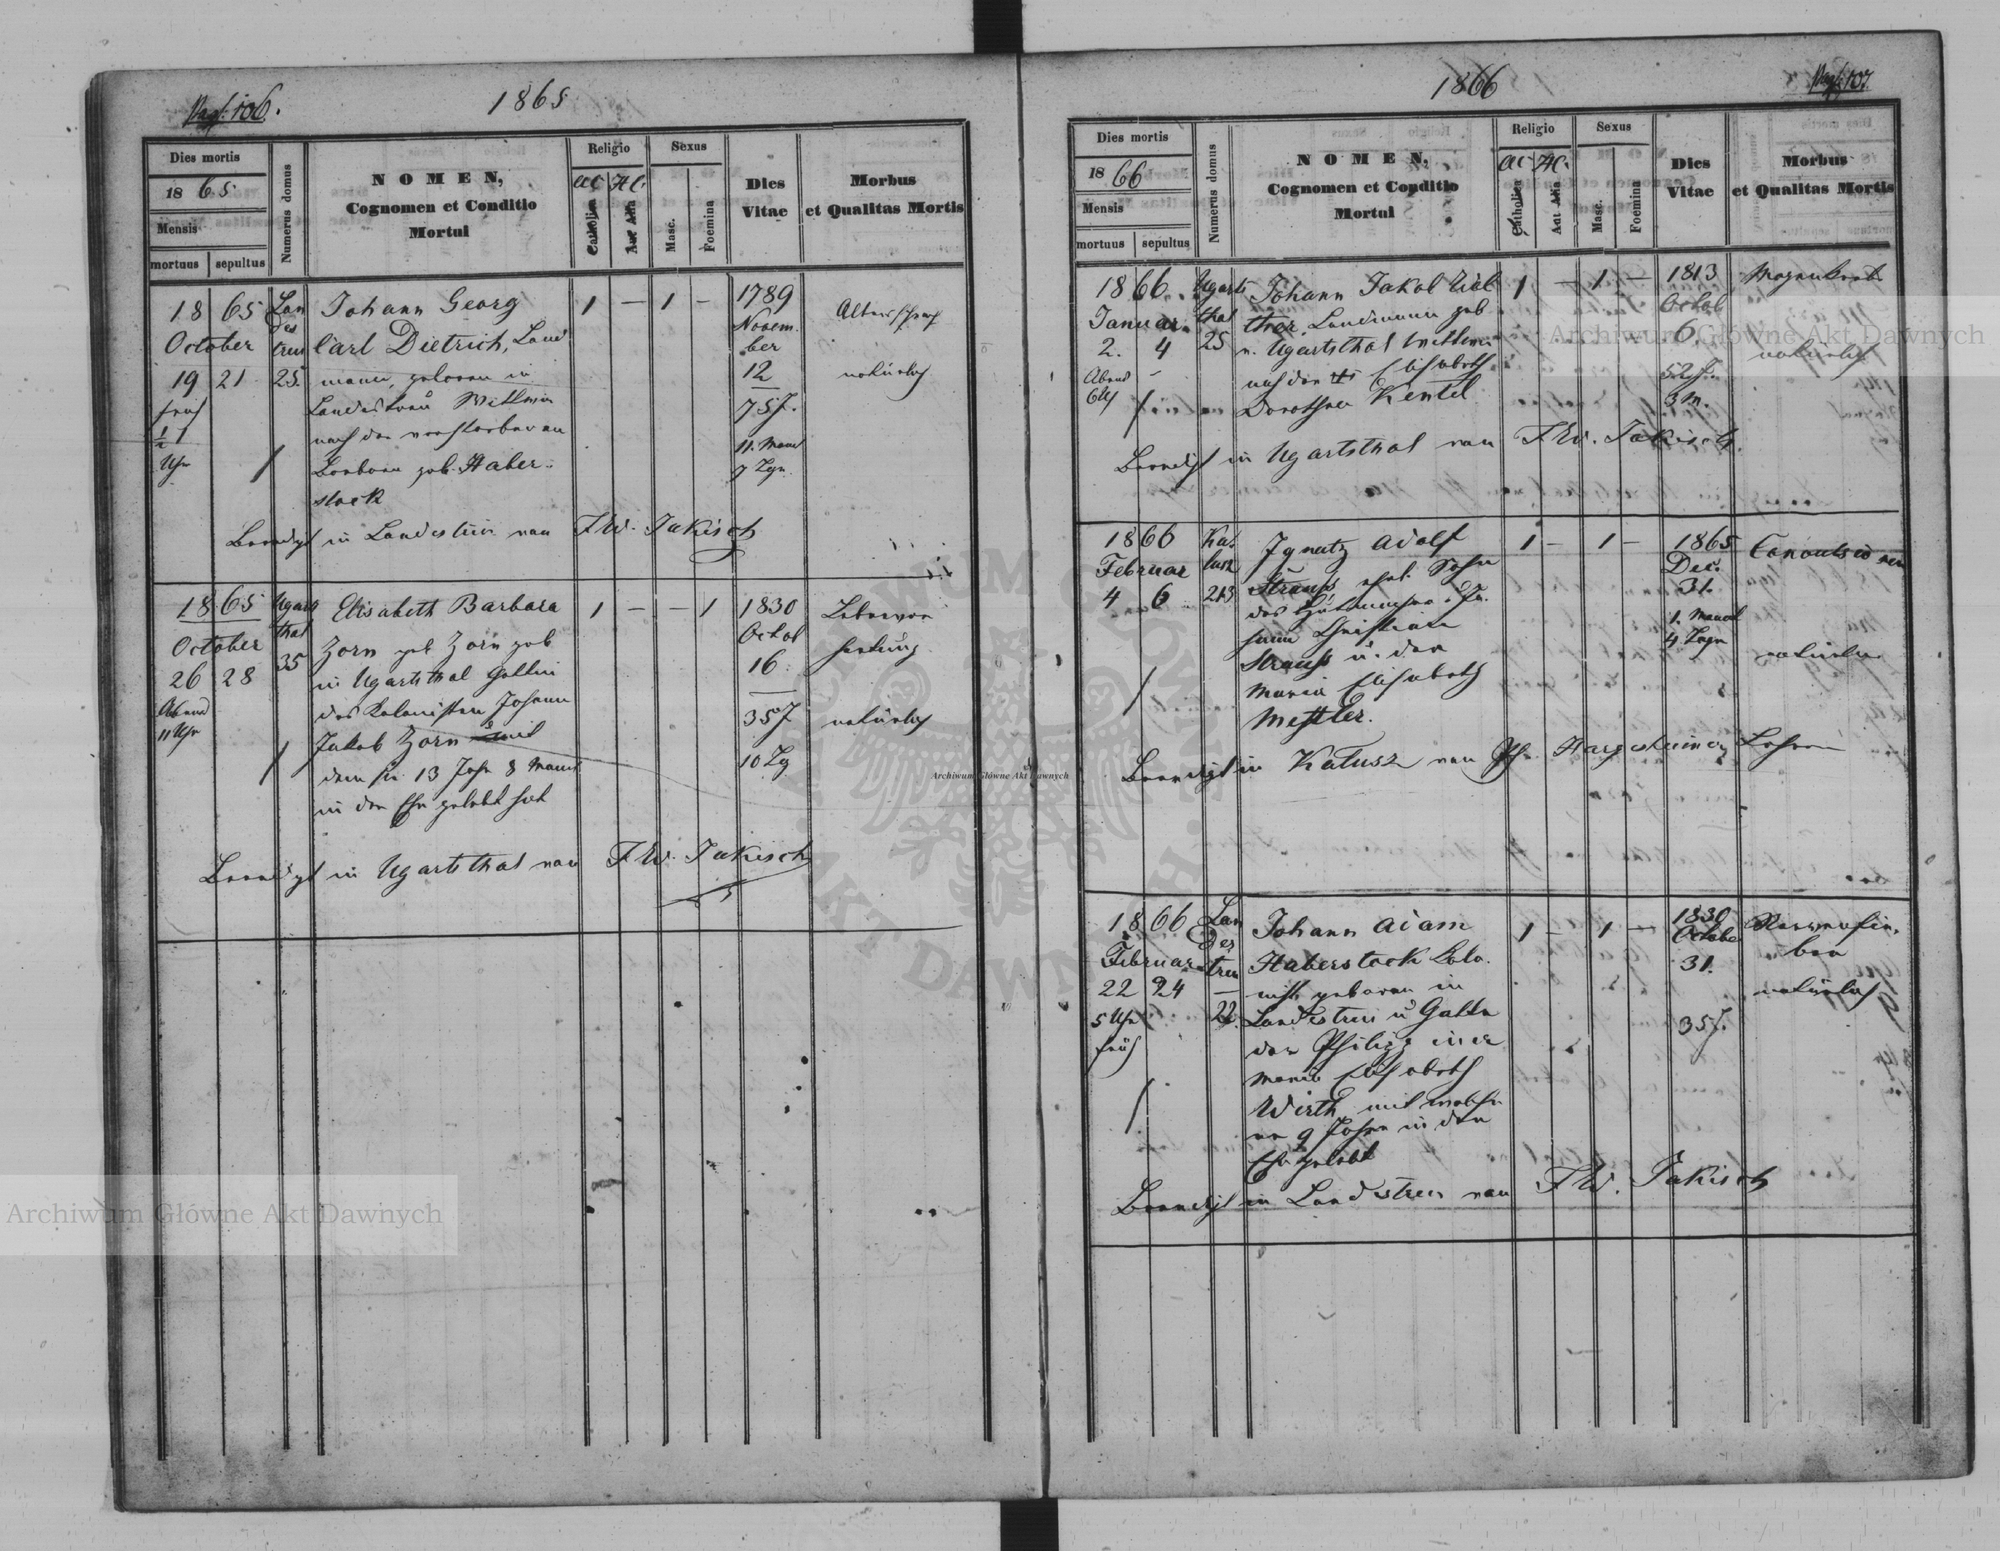 Pag. 106.
1865
Dies mortis
1865
Mensis
mortuus
sepultus
Numerus domus
NOMEN,
Cognomen et Conditio
Mortui
Religio
AC HC
Catholica
Aut Alia
Sexus
Masc.
Foemina
Dies
Vitae
Morbus
et Qualitas Mortis
1865
October
19 21
früh
1/2 1
Uhr
Lan
des
treu
25.
Johann Georg
Carl Dietrich, Land
mann, geboren in
Landestreu Wittwer
nach der verstorbenen
Barbara geb. Haber-
stock
1 — 1 —
1789
Novem
ber
12
75 J.
11. Monat
7 Tgn.
Altersschwäche
natürlich
Beerdigt in Landestreu von F.W. Jakisch
1865
October
26 28
Abend
11 Uhr
Ugarts
thal
35
Elisabeth Barbara
Zorn geb Zorn geb
in Ugartsthal Gattin
des Kolonisten Johann
Jakob Zorn mit
dem sie 13 Jahr 8 Monat
in der Ehe gelebt hat
1 — — 1
1830
Octob
16
35 J
10 Tg
Leberver
härtung
natürlich
Beerdigt in Ugartsthal von F.W. Jakisch
1866
Pag. 107.
Dies mortis
1866
Mensis
mortuus
sepultus
Numerus domus
NOMEN,
Cognomen et Conditio
Mortui
Religio
AC HC.
Catholica
Aut Alia
Sexus
Masc.
Foemina
Dies
Vitae
Morbus
et Qualitas Mortis
1866
Januar
2. 4
Abend
6 Uhr
Ugarts
thal
25
Johann Jakob
Landmann geb
in Ugartsthal Wittwer
nach der Elisabeth
Dorothea Kentel
1 — 1 —
1813
Octob
6.
52 J.
3 M.
Magenkrebs
natürlich
Beerdigt in Ugartsthal von F.W. Jakisch.
1866
Februar
4 6
Ka-
lusz
213
Ignatz Adolf
Strauss, ehel. Sohn
des Jo
hann Christian
Strauss u. der
Maria Elisabeth
Mettler.
1 — 1 —
1865
Dec.
31.
1. Monat
4 Tage
Convulsionen
natürlich
Beerdigt in Kalusz von Lehrer
1866
Februar
22 24
5 Uhr
früh
Lan
des
treu
22.
Johann Adam
Haberstock Colo-
nist, geboren in
Landestreu u Gatte
der Philippine
Maria Elisabeth
Wirth, mit welcher
er 9 Jahre in der
Ehe gelebt
1 — 1 —
1830
October
31.
35 J.
Nervenfie-
ber
natürlich
Beerdigt in Landestreu von F.W. Jakisch
Archiwum Główne Akt Dawnych
Archiwum Główne Akt Dawnych
Archiwum Główne Akt Dawnych